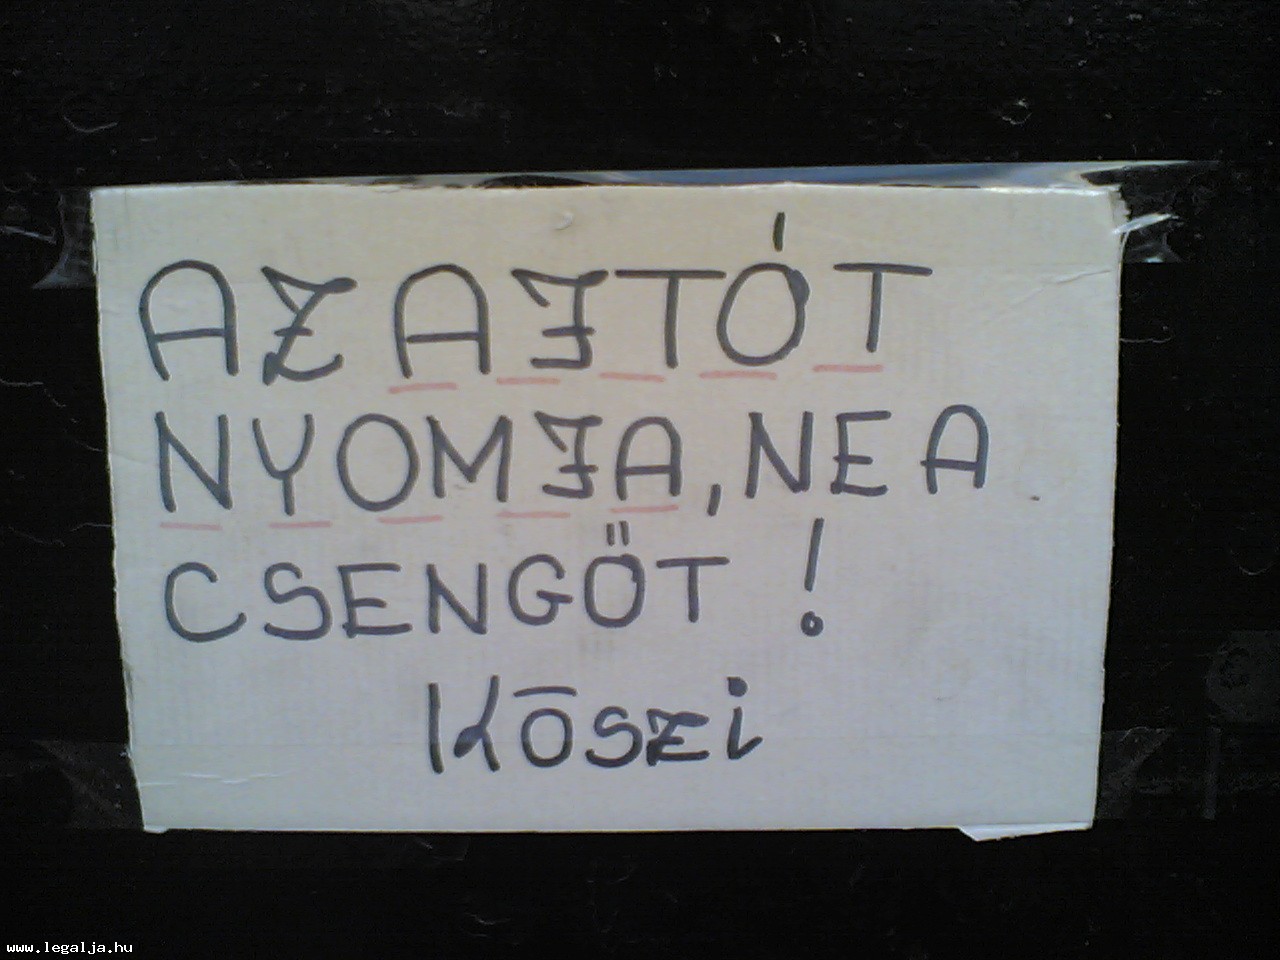 AZ AJTÓT
NYOMJA, NE A
CSENGŐT !
Kōszi
www.legalja.hu